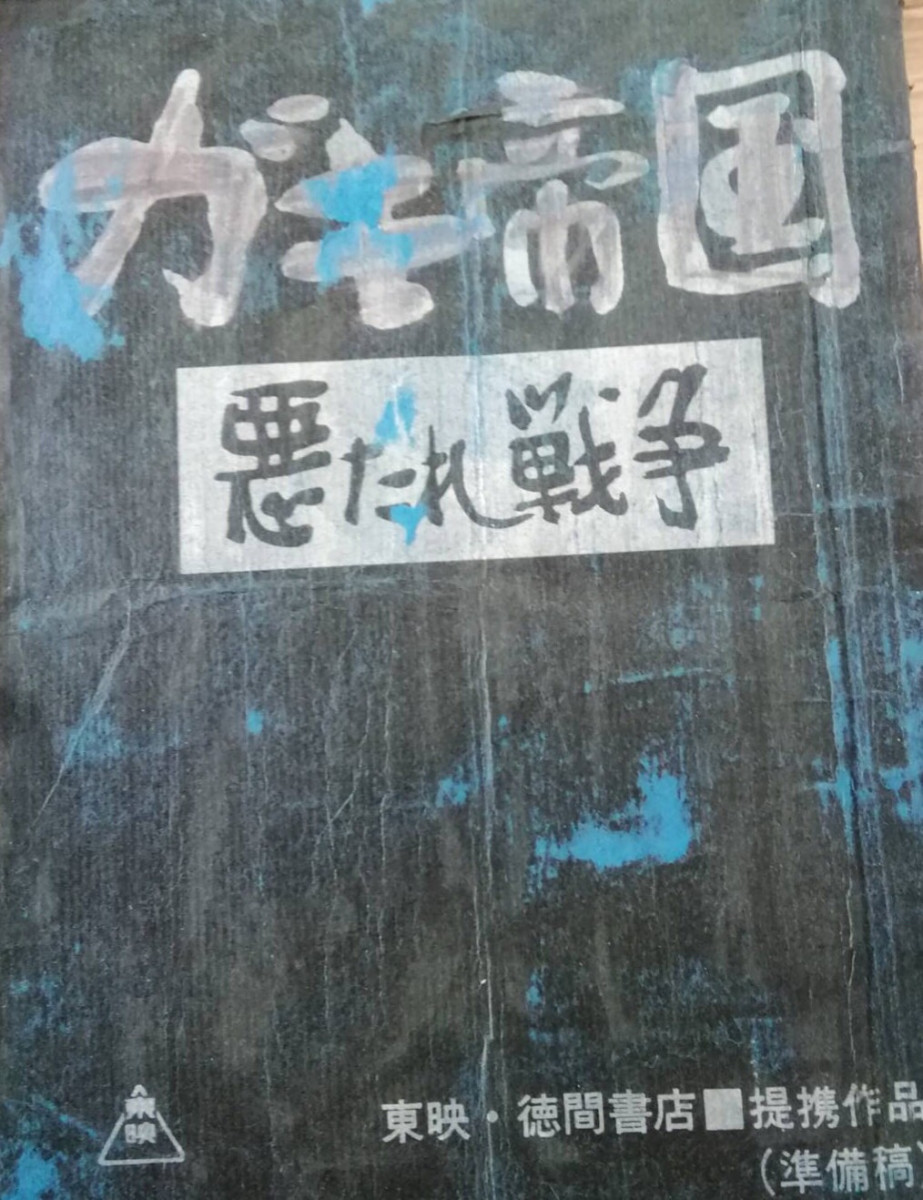 がき帝国
悪たれ戦争
東映
東映・徳間書店■提携作品
(準備稿)